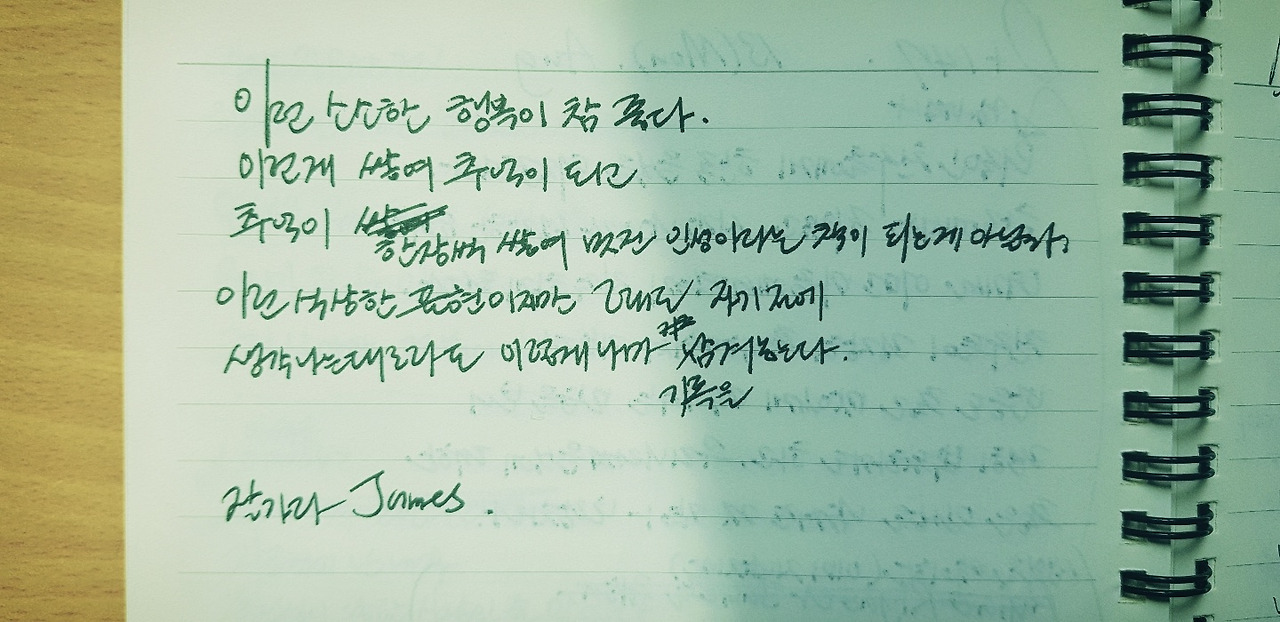 이런 소소한 행복이 참 좋다.
이런게 쌓여 추억이 되고
추억이
한장씩 쌓여 멋진 인생이라는 책이 되는게 아닐까?
이런 식상한 표현이지만 그래도 자기전에
생각나는대로라도 이렇게 나마 남겨놓는다.
기록을
잘가라 James.